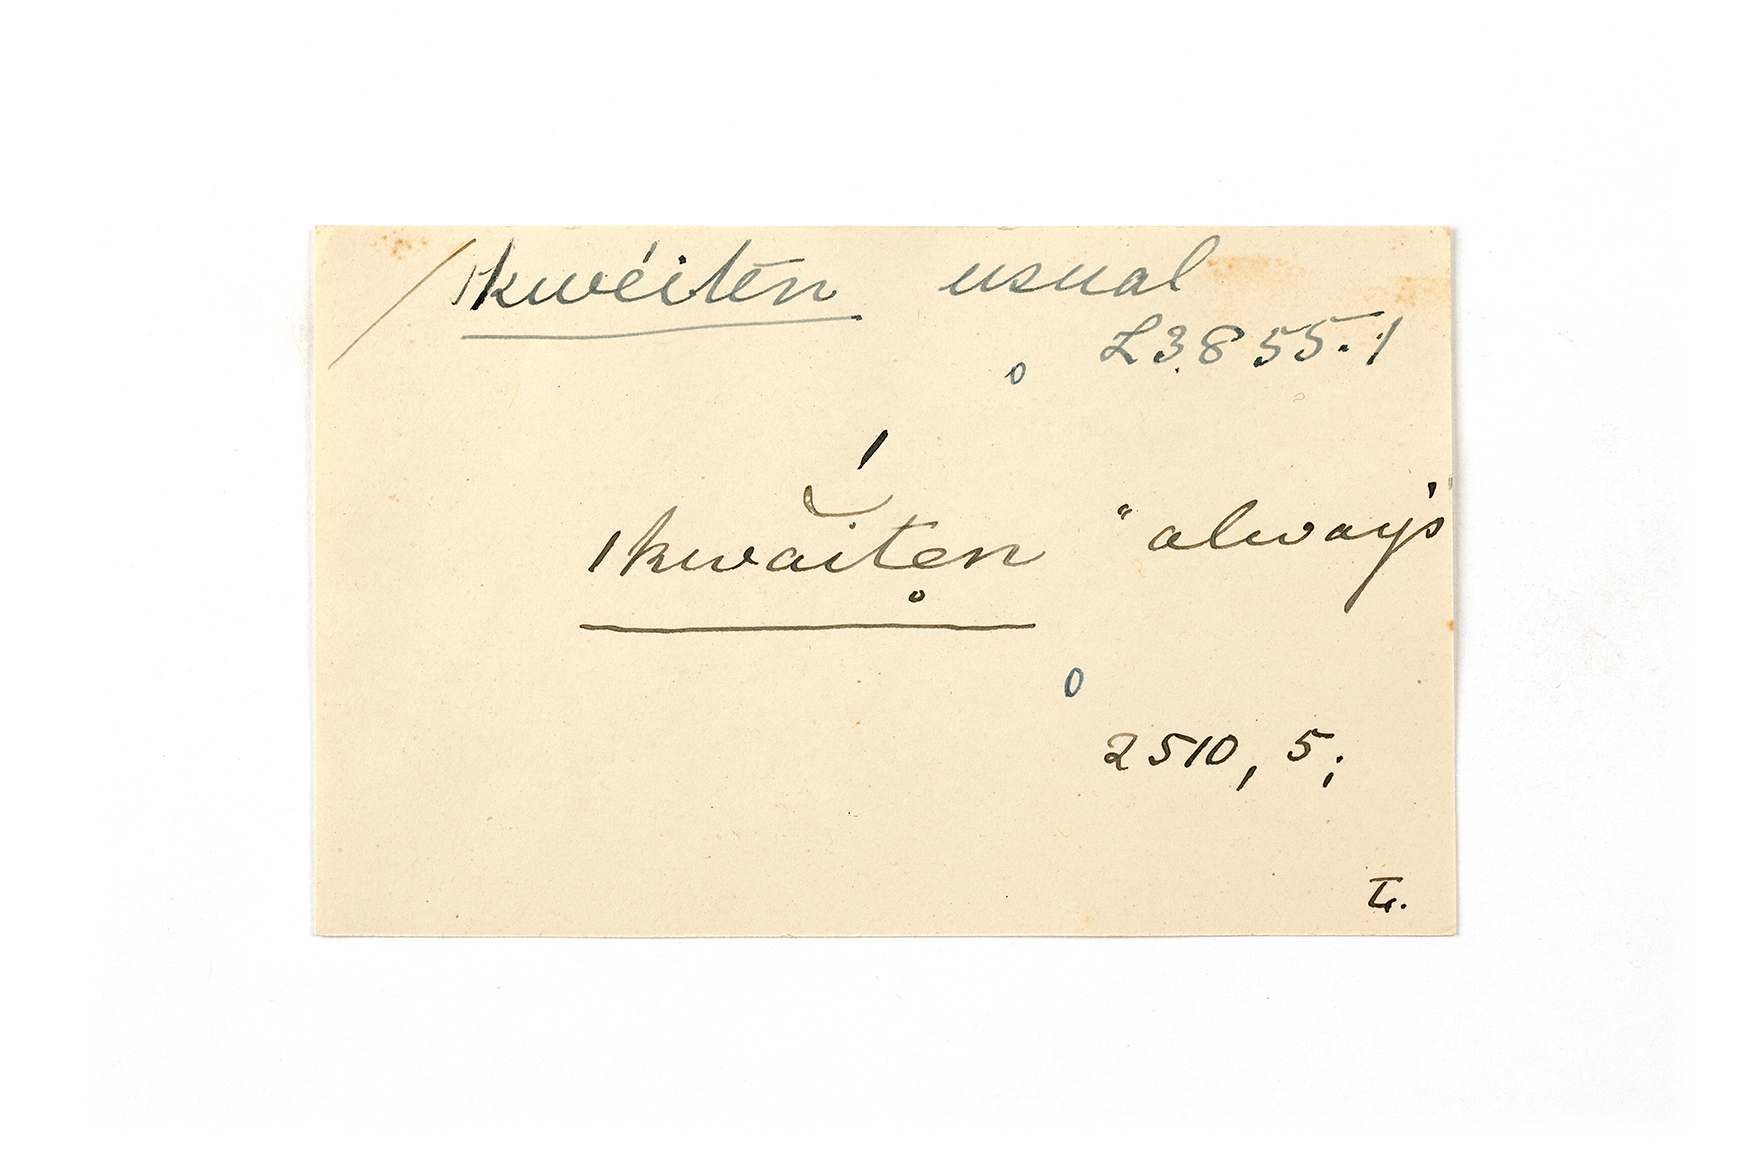 /ǀkwéitẽn usual
o L3855.1
ǀkwắitẹn "always"
o 2510, 5;